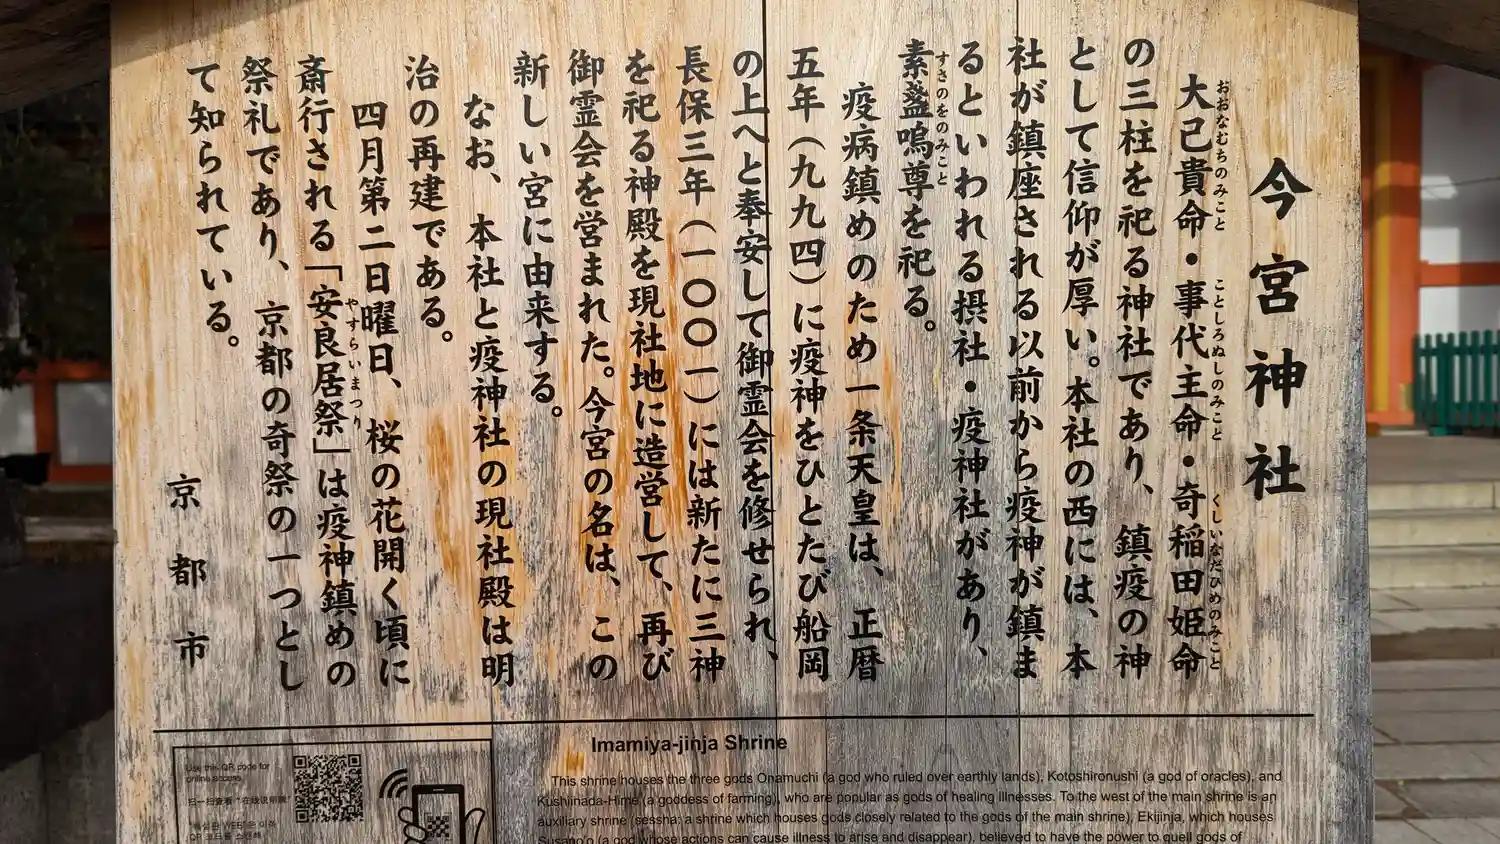 今宮神社
大己貴命・事代主命・奇稲田姫命
おおなむちのみこと ことしろぬしのみこと くしいなだひめのみこと
の三柱を祀る神社であり、鎮疫の神
として信仰が厚い。本社の西には、本
社が鎮座される以前から疫神が鎮ま
るといわれる摂社・疫神社があり、
素盞嗚尊を祀る。
すさのをのみこと
疫病鎮めのため一条天皇は、正暦
五年(九九四)に疫神をひとたび船岡
の上へと奉安して御霊会を修せられ、
長保三年(一〇〇一)には新たに三神
を祀る神殿を現社地に造営して、再び
御霊会を営まれた。今宮の名は、この
新しい宮に由来する。
なお、本社と疫神社の現社殿は明
治の再建である。
四月第二日曜日、桜の花開く頃に
斎行される「安良居祭」は疫神鎮めの
やすらいまつり
祭礼であり、京都の奇祭の一つとし
て知られている。
京都市
Imamiya-jinja Shrine
This shrine houses the three gods Onamuchi (a god who ruled over earthly lands), Kotoshironushi (a god of oracles), and
Kushiinada-Hime (a goddess of farming), who are popular as gods of healing illnesses. To the west of the main shrine is an
auxiliary shrine (sessha: a shrine which houses gods closely related to the gods of the main shrine), Ekijinja, which houses
Susano'o (a god whose actions can cause illness to arise and disappear), believed to have the power to quell gods of
Use this QR code for
online access.
扫一扫查看"在线说明牌"